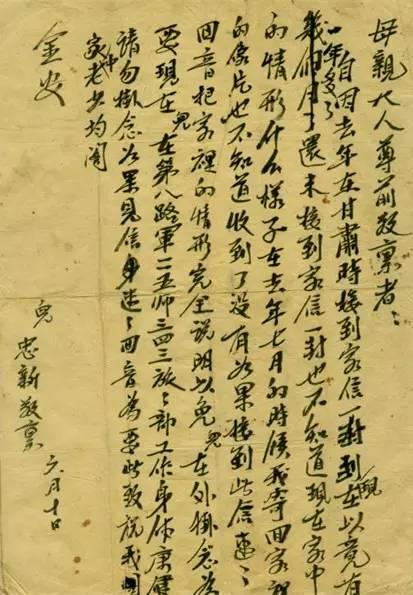 母親大人尊前敬禀者：
自因去年在甘肅時接到家信一封到現在以竟有
一年多了
幾個月了還未接到家信一封也不知道現在家中
的情形什么樣子在去年七月的時候我寄回家裡
的像片也不知道收到了没有如果接到此信速々
回音把家裡的情形完全說明以免兒在外掛念為
要現在兒在第八路軍一一五師三四三旅々部工作身体康健
請勿掛念如果見信速々回音為要此致祝我
家中老少均閤
金安
兒 忠新敬禀 六月十日